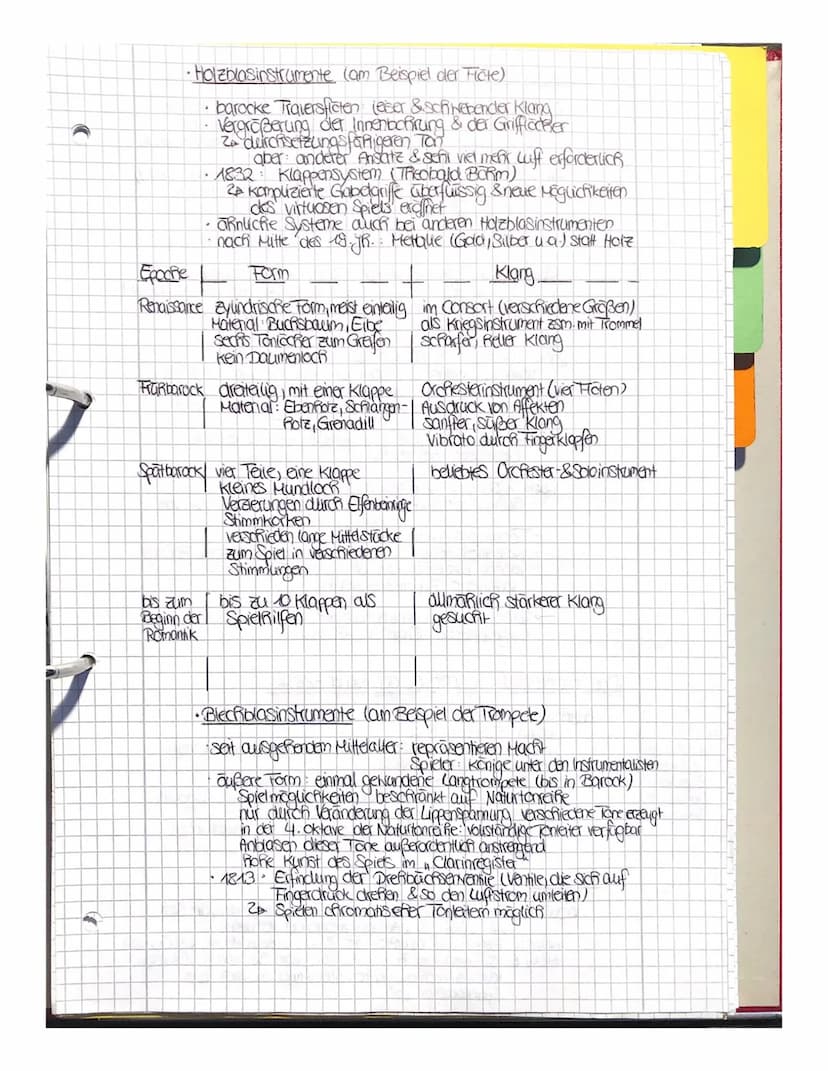 · Holzblasinstrumente (am Beispiel der Flöte)
· barocke Traversflöten: leiser & schwebender Klang
· Vergrößerung der Innenbohrung & der Grifflöcher
↳ durchsetzungsfähigeren Ton
aber: anderer Ansatz & sehr viel mehr Luft erforderlich
· 1832: Klappensystem (Theobald Böhm)
↳ komplizierte Gabelgriffe überflüssig & neue Möglichkeiten
des virtuosen Spiels eröffnet
· ähnliche Systeme auch bei anderen Holzblasinstrumenten
· nach Mitte des 19. Jh.: Metalle (Gold, Silber u.a.) statt Holz
Epoche | Form | Klang
Renaissance | zylindrische Form, meist einteilig | im Consort (verschiedene Größen)
Material: Buchsbaum, Eibe | als Kriegsinstrument zsm. mit Trommel
sechs Tonlöcher zum Greifen | scharfer, heller Klang
kein Daumenloch
Frühbarock | dreiteilig, mit einer Klappe | Orchesterinstrument (vier Flöten)
Material: Ebenholz, Schlangen- | Ausdruck von Affekten
holz, Grenadill | sanfter, süßer Klang
Vibrato durch Fingerklopfen
Spätbarock | vier Teile, eine Klappe | beliebtes Orchester- & Soloinstrument
kleines Mundloch
Verzierungen durch Elfenbeinringe
Stimmkorken
verschieden lange Mittelstücke
zum Spiel in verschiedenen
Stimmungen
bis zum | bis zu 10 Klappen als | allmählich stärkerer Klang
Beginn der | Spielhilfen | gesucht
Romantik
· Blechblasinstrumente (am Beispiel der Trompete)
· seit ausgehenden Mittelalter: repräsentieren Macht
Spieler: Könige unter den Instrumentalisten
· äußere Form: einmal gewundene Langtrompete (bis in Barock)
Spielmöglichkeiten beschränkt auf Naturtonreihe
nur durch Veränderung der Lippenspannung verschiedene Töne erzeugt
in der 4. Oktave der Naturtonreihe: vollständige Tonleiter verfügbar
Anblasen dieser Töne außerordentlich anstrengend
hohe Kunst des Spiels im „Clarinregister"
· 1813: Erfindung der Drehbüchsenventile (Ventile, die sich auf
Fingerdruck drehen & so den Luftstrom umleiten)
↳ Spielen chromatischer Tonleitern möglich